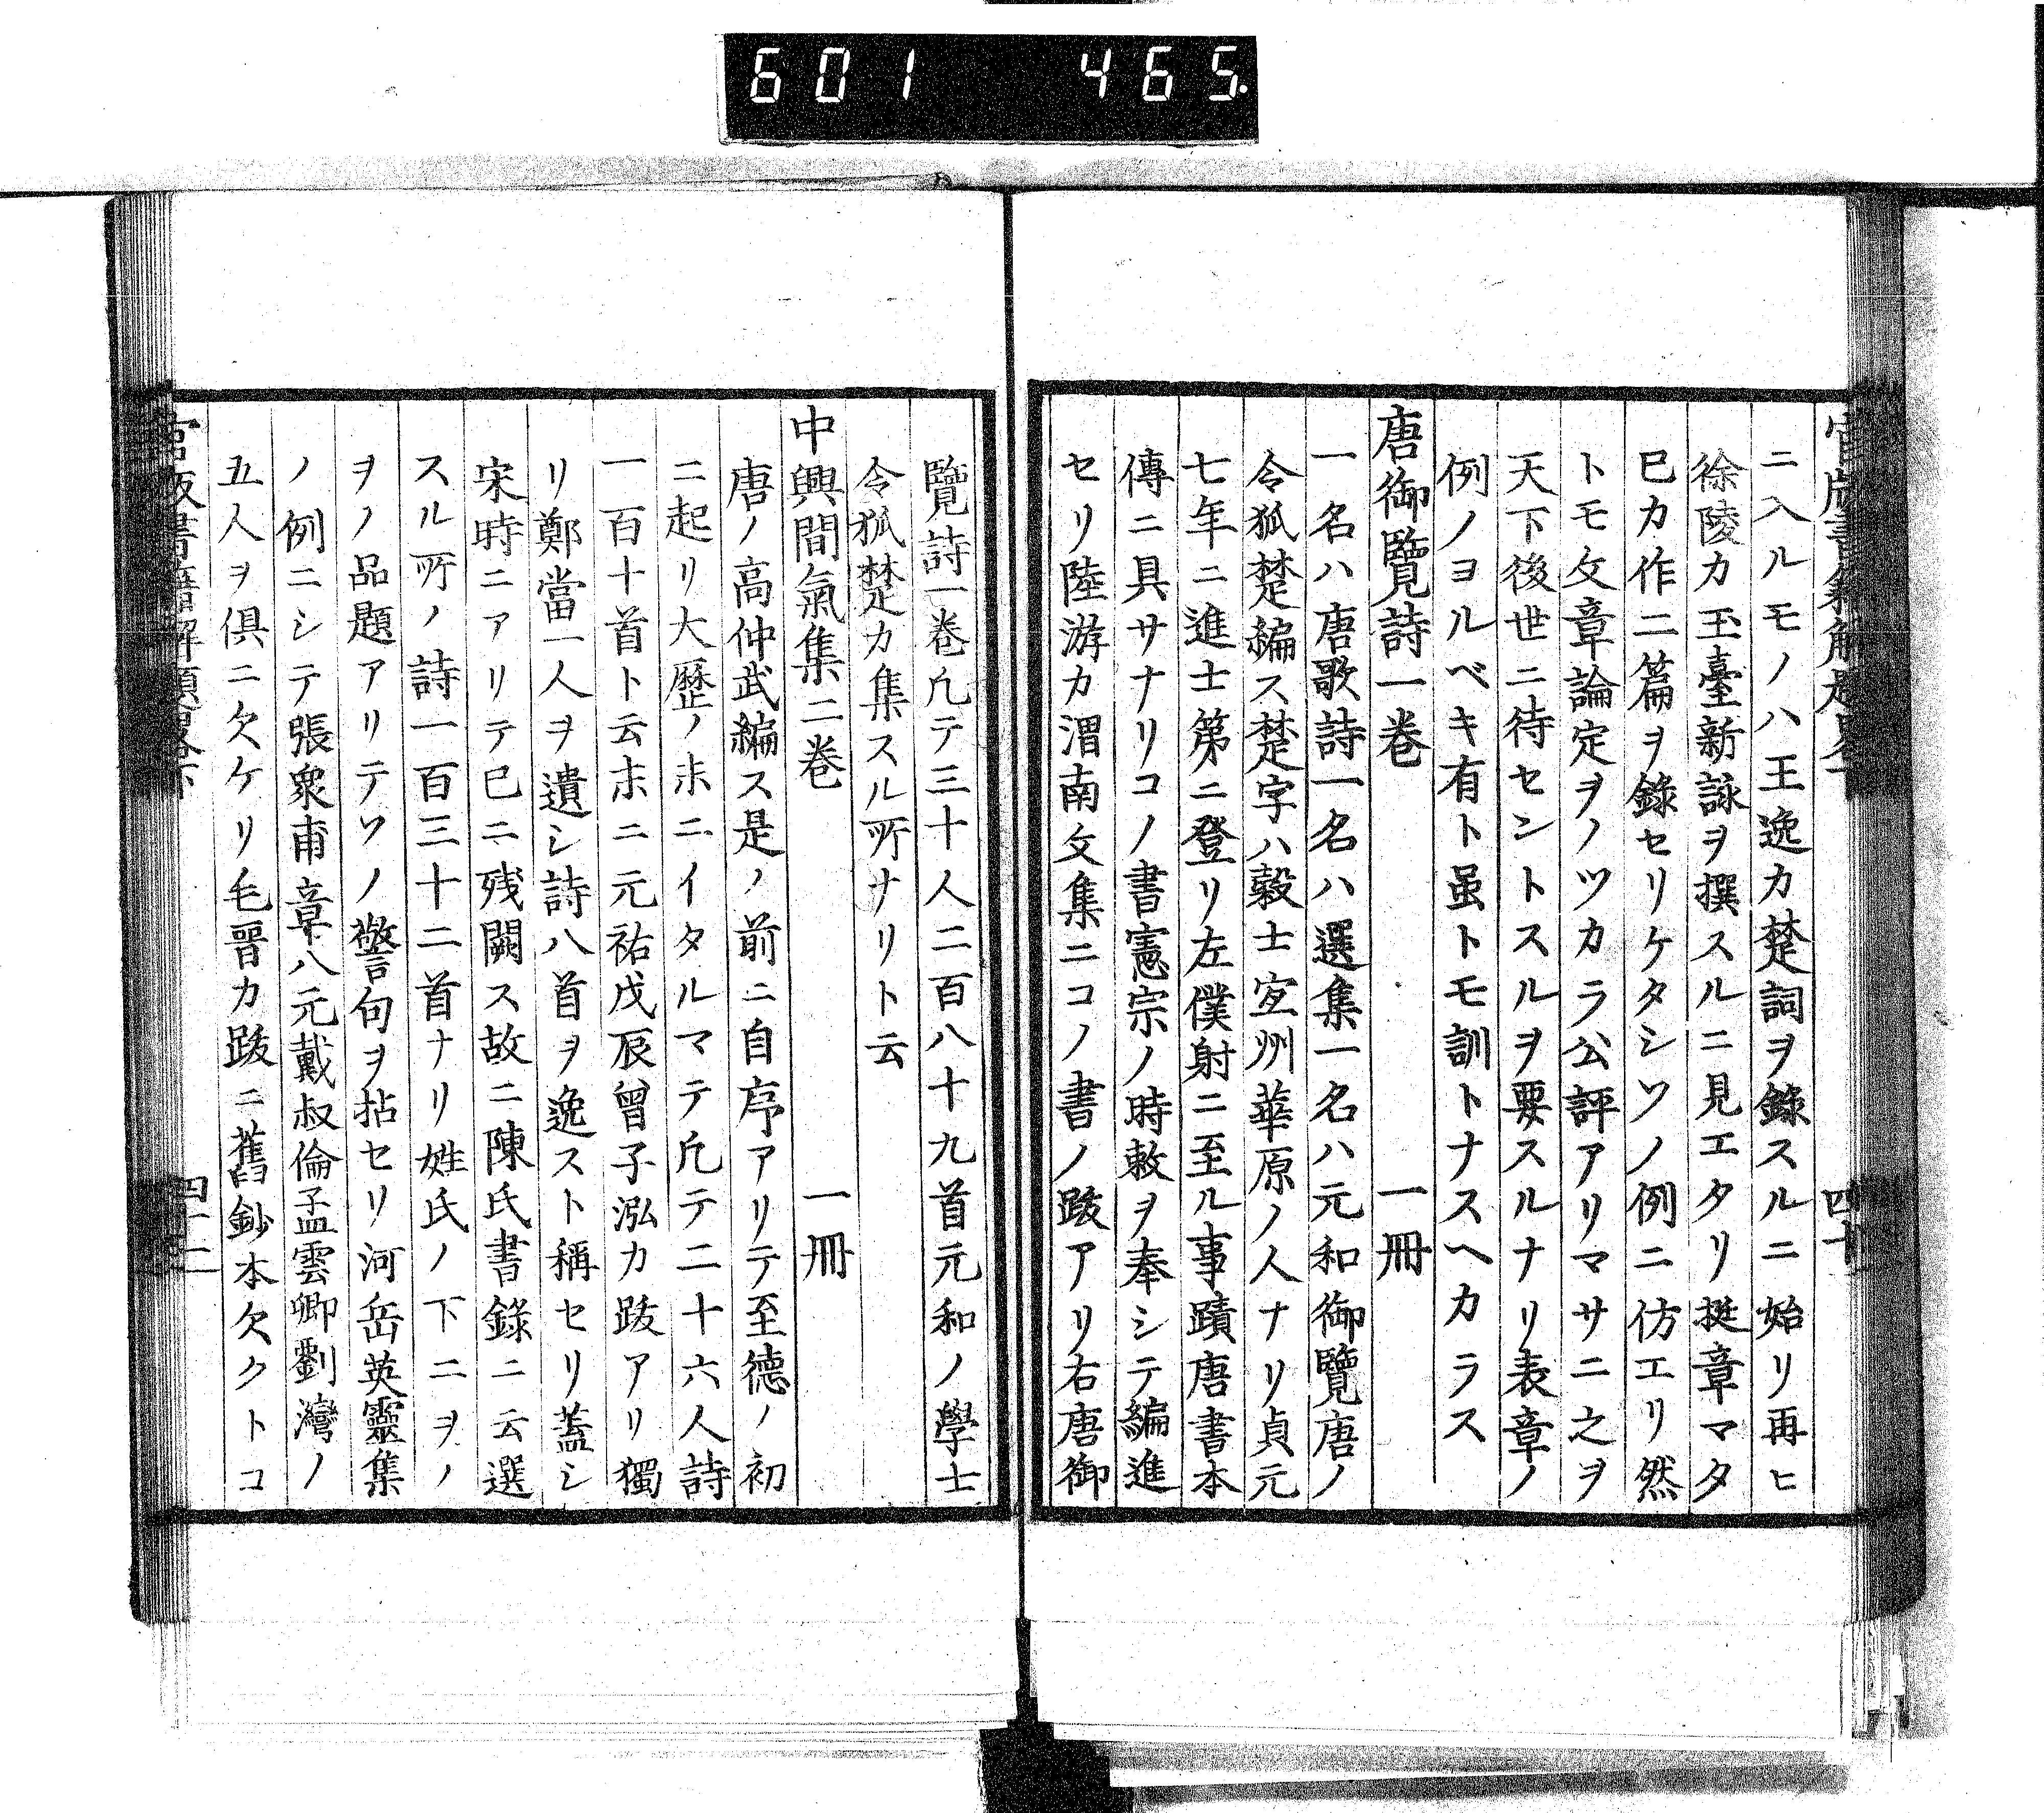 601 465.
ニ入ルモノハ王逸カ楚詞ヲ錄スルニ始リ再ヒ
徐陵カ玉臺新詠ヲ撰スルニ見エタリ挺章マタ
巳カ作二篇ヲ錄セリケタシソノ例ニ仿エリ然
トモ文章論定ヲノツカラ公評アリマサニ之ヲ
天下後世ニ待セントスルヲ要スルナリ表章ノ
例ノヨルベキ有ト虽トモ訓トナスヘカラス
唐御覽詩一巻 一冊
一名ハ唐歌詩一名ハ選集一名ハ元和御覽唐ノ
令狐楚編ス楚字ハ縠士宜州華原ノ人ナリ貞元
七年ニ進士第ニ登リ左僕射ニ至ル事蹟唐書本
傳ニ具サナリコノ書憲宗ノ時敕ヲ奉シテ編進
セリ陸游カ渭南文集ニコノ書ノ跋アリ右唐御
覽詩一巻凡テ三十人二百八十九首元和ノ學士
令狐楚カ集スル所ナリト云
中興間氣集二巻 一冊
唐ノ高仲武編ス是ノ前ニ自序アリテ至德ノ初
ニ起リ大歷ノ末ニイタルマテ凡テ二十六人詩
一百十首ト云末ニ元祐戊辰曾子泓カ跋アリ獨
リ鄭當一人ヲ遺シ詩八首ヲ逸スト稱セリ蓋シ
宋時ニアリテ巳ニ残闕ス故ニ陳氏書錄ニ云選
スル所ノ詩一百三十二首ナリ姓氏ノ下ニヲノ
ヲノ品題アリテソノ警句ヲ拈セリ河岳英靈集
ノ例ニシテ張衆甫章八元戴叔倫孟雲卿劉灣ノ
五人ヲ俱ニ欠ケリ毛晋カ跋ニ舊鈔本欠クトコ